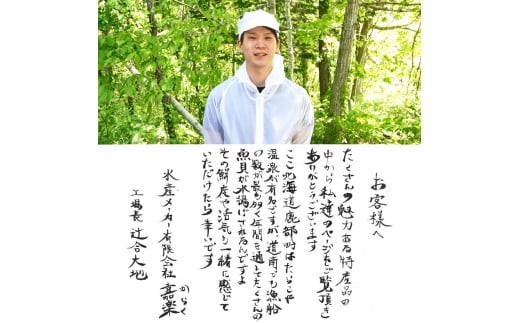 お客様へ
たくさんの魅力ある特産品の
中から私達のページをご覧頂き
ありがとうございます
ここ北海道鹿部町はたらこや
温泉が有名ですが、道南でも漁船
の数が最も多く年間を通してたくさんの
魚貝が水揚げされるんですよ
その鮮度や活気も一緒に感じて
いただけたら幸いです
水産メーカー有限会社嘉楽
からく
工場長 辻合大地